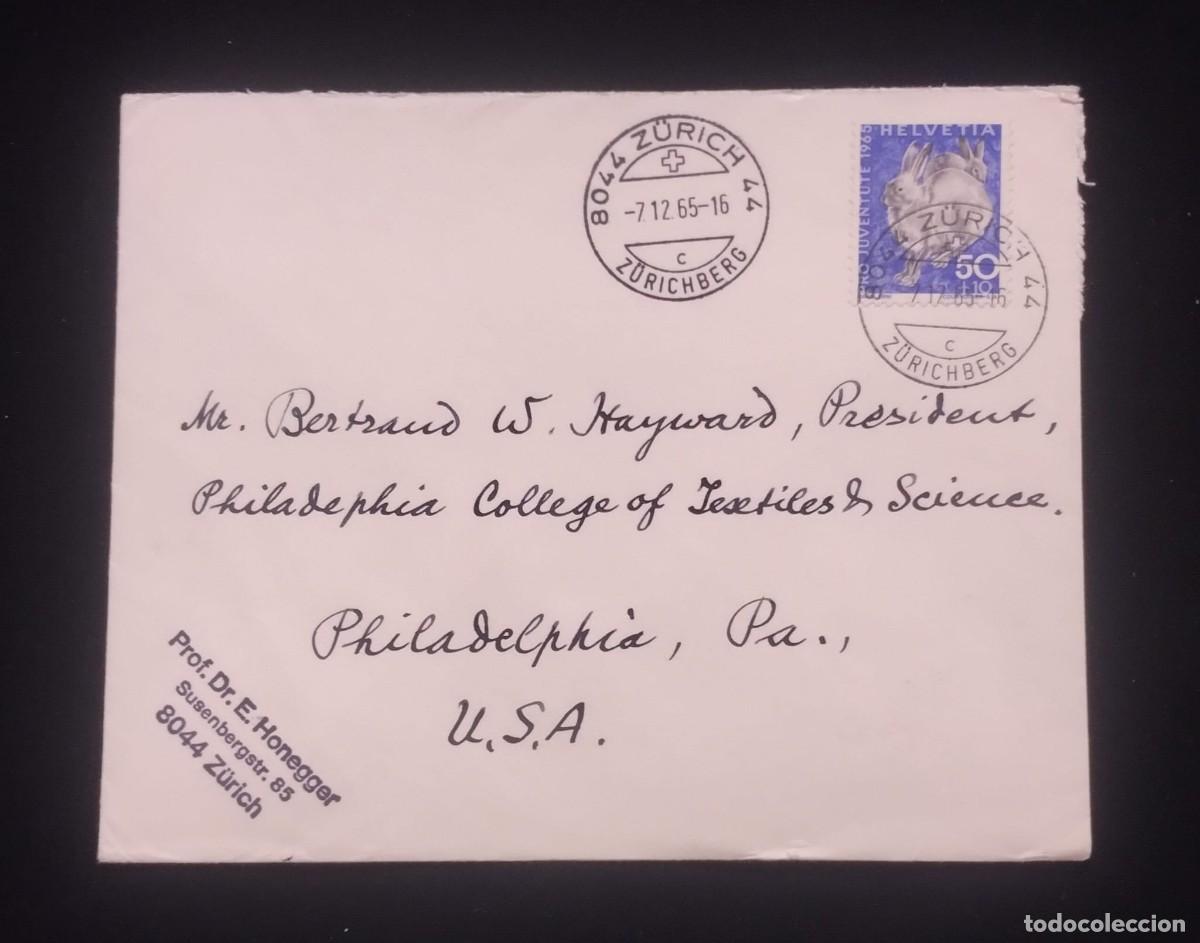 8044 ZÜRICH 44
-7.12.65-16
C
ZÜRICHBERG
HELVETIA
PRO JUVENTUTE 1965
50
+10
8044 ZÜRICH 44
-7.12.65-16
C
ZÜRICHBERG
Mr. Bertrand W. Hayward, President,
Philadephia College of Textiles & Science.
Philadelphia, Pa.,
U.S.A.
Prof. Dr. E. Honegger
Susenbergstr. 85
8044 Zürich
todocoleccion